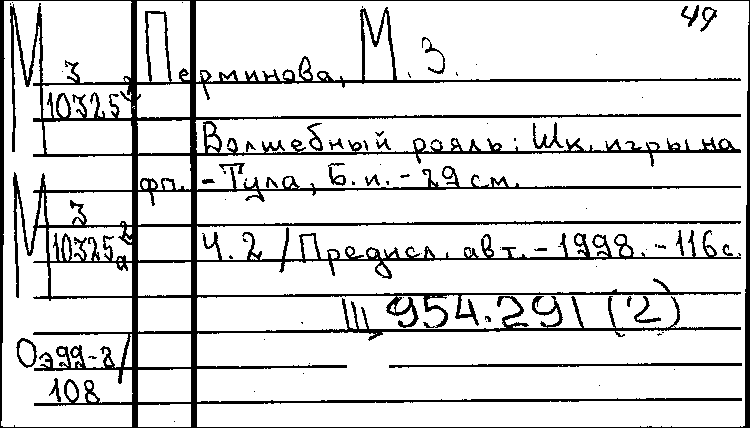 49
М 3 Перминова, М. З.
10325
Волшебный рояль: Шк. игры на
фп. - Тула, Б.и. - 29 см.
М 3
10325а 2
Ч. 2 / Предисл. авт. - 1998. - 116 с.
954.291 (2)
Оэ99-8/
108